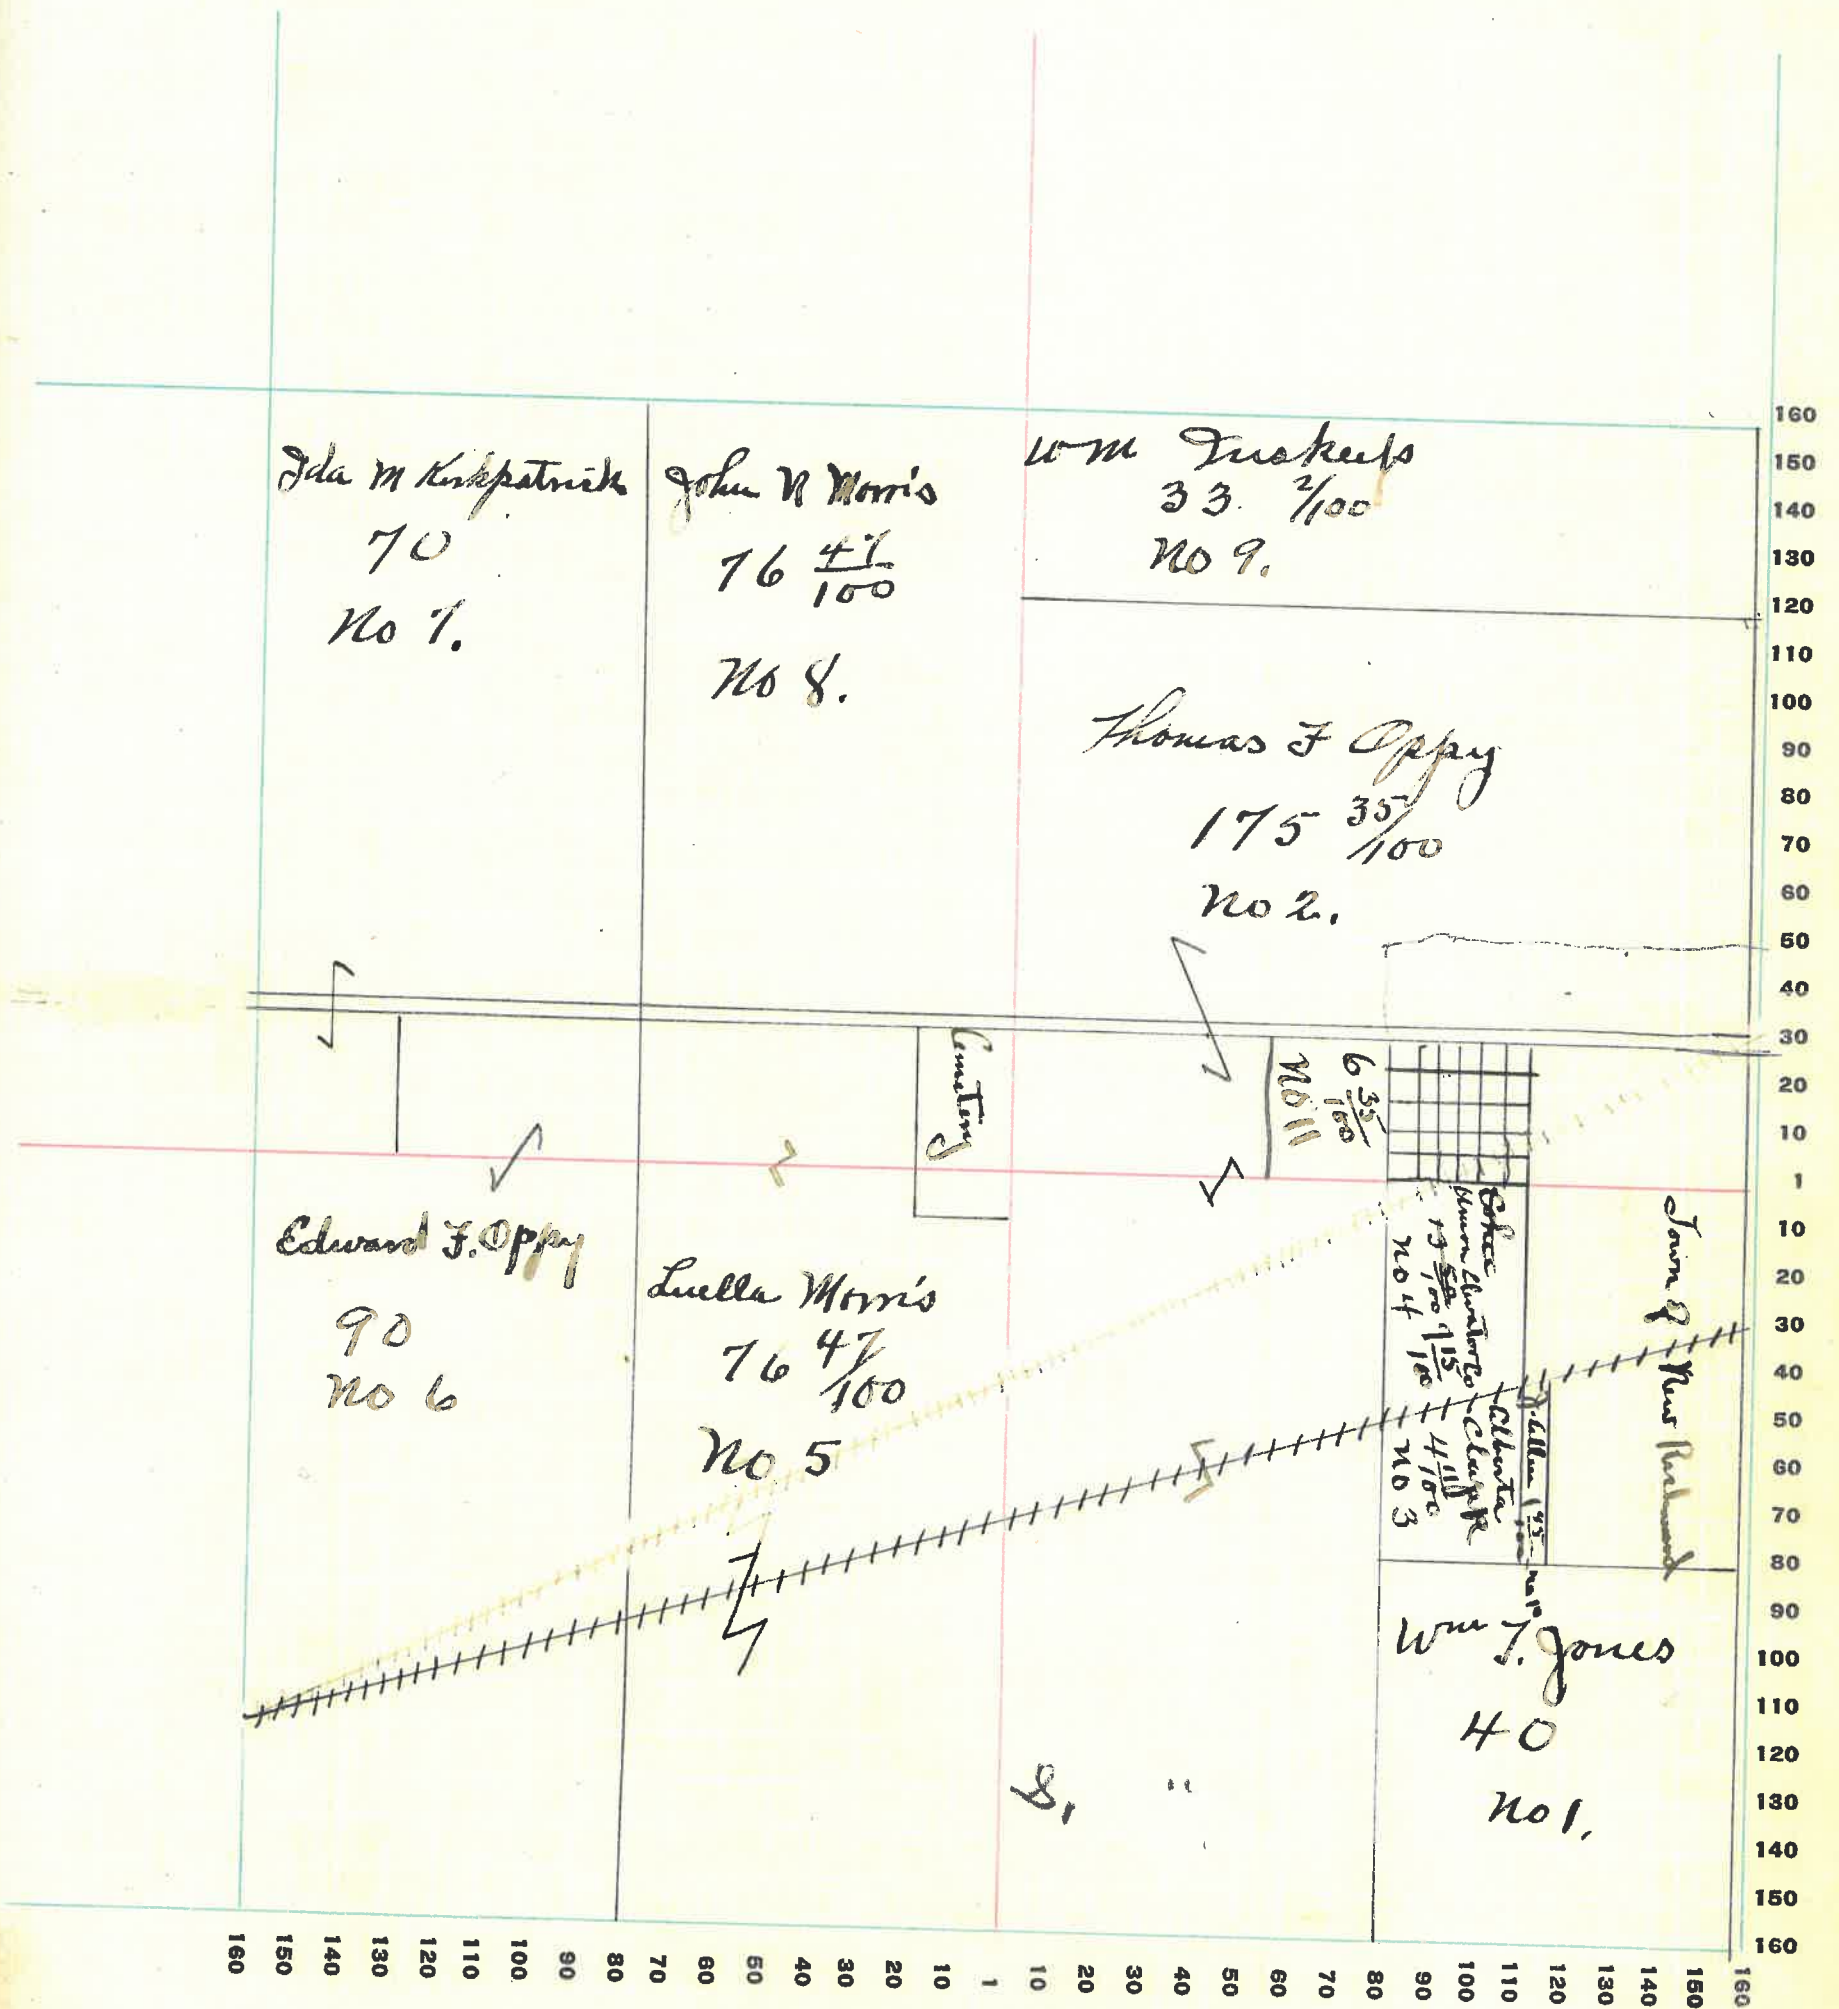 Ida M Kirkpatrick
70
No 7.
John N Morris
76 47/100
No 8.
Wm Inskeep
33. 2/100
No 9.
Thomas F Oppy
175 35/100
No 2.
Cemetery
6 35/100
No 11
Edward F. Oppy
90
No 6
Luella Morris
76 47/100
No 5
Cohee
Union Elevator Co
7 15/100
No 4
Alberta
Clapp
4 11/100
No 3
Allen 1 45/100 No 10
Town of New Richmond
Wm T. Jones
40
No 1.
S.
160
150
140
130
120
110
100
90
80
70
60
50
40
30
20
10
1
10
20
30
40
50
60
70
80
90
100
110
120
130
140
150
160
160
150
140
130
120
110
100
90
80
70
60
50
40
30
20
10
1
10
20
30
40
50
60
70
80
90
100
110
120
130
140
150
160